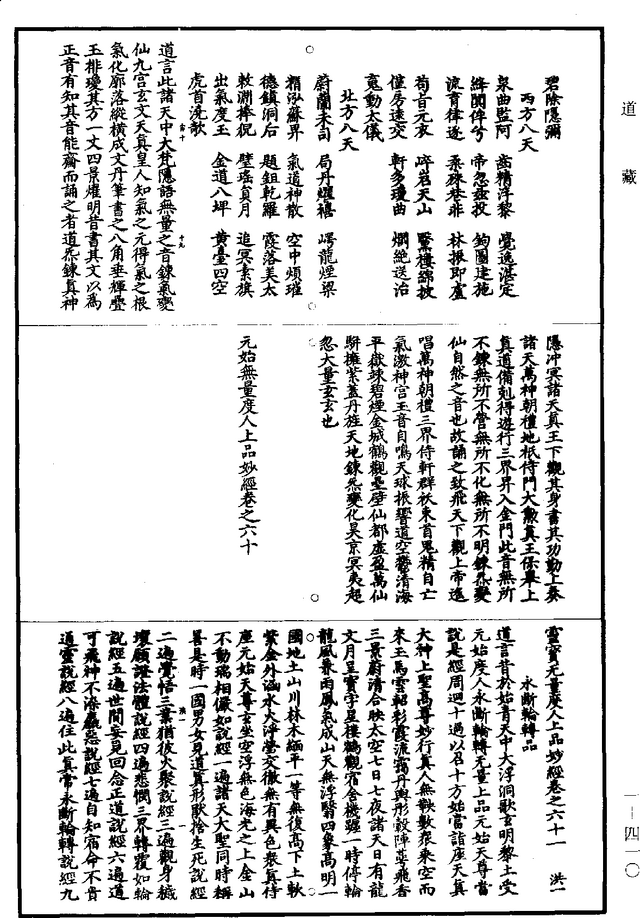 道藏
碧除隱彌
西方八天
泉曲監阿　齒精淳黎　覺逸湛定
絳闕伴兮　帝忽茲投　鉤圖建施
流育律逐　乘硃巷非　林報即盧
荀首元衣　崪岩天山　驚樓錦披
僅房遠交　軒多瓊曲　爛絕送治
寬動太儀
北方八天
蔚蘭未司　局丹媸禧　崿龍煙梁
精泓蘇界　氣道神散　空中煩璀
德鎮洞后　題鈕乾羅　霞落美太
敕淵捧侃　璧瑤貞月　追冥素旗
出氣度玉　金道八坪　黃臺四空
虎首洗歌
道言此諸天中大梵隱語無量之音鍊氣變
仙九宮玄文天真皇人知氣之元得氣之根
氣化廓落縱橫成文丹筆書之八角垂輝璺
玉排瓊其方一丈四景耀明昔書其文以為
正音有知其音能齋而誦之者道炁鍊真神
隱沖冥諸天真王下觀其身書其功勤上奏
諸天萬神朝禮地祇侍門大勳真王保舉上
真道備剋得遊行三界昇入金門此音無所
不鍊無所不管無所不化無所不明鍊炁變
仙自然之音也故誦之致飛天下觀上帝遙
唱萬神朝禮三界侍軒群祅束首鬼精自亡
氣激神宮玉音自鳴天球振響道空鬱清海
平嶽竦碧煙金城鶴觀壘壁仙都虛盈萬仙
駢擁紫蓋丹旌天地鍊炁變化昊京冥夷超
忽大量玄玄也
元始無量度人上品妙經卷之六十
靈寶无量度人上品妙經卷之六十一　洪一
永斷輪轉品
道言昔於始青天中大浮洞歌玄明黎土受
元始度人永斷輪轉无量上品元始天尊當
說是經周迴十過以召十方始當詣座天真
大神上聖高尊妙行真人無鞅數衆乘空而
來玉馬雲軺彩霞流霜丹輿彤轂降葉飛香
三景蔚清合映太空七日七夜諸天日有龍
文月呈寶字星樓鶴觀宿金機躔一時停輪
龍風景雨鳳氣成山天無浮翳四象高明一
國地土山川林木緬平一等無復高下上軟
紫金外涵水大淨瑩交徹無有異色衆真侍
座元始天尊玄坐空浮無色海光之上金山
不動瑞相儼如說經一遍諸天大聖同時稱
善是時一國男女見道真形厭捨生死說經
二遍覺悟三業猶彼火聚說經三遍觀身穢
壞願證法體說經四遍悲憫三界轉覆如輪
說經五遍世間妄見回念正道說經六遍道
可飛神不滯麤惡說經七遍自知宿命不貴
通靈說經八遍住此真常永斷輪轉說經九
一－四一〇